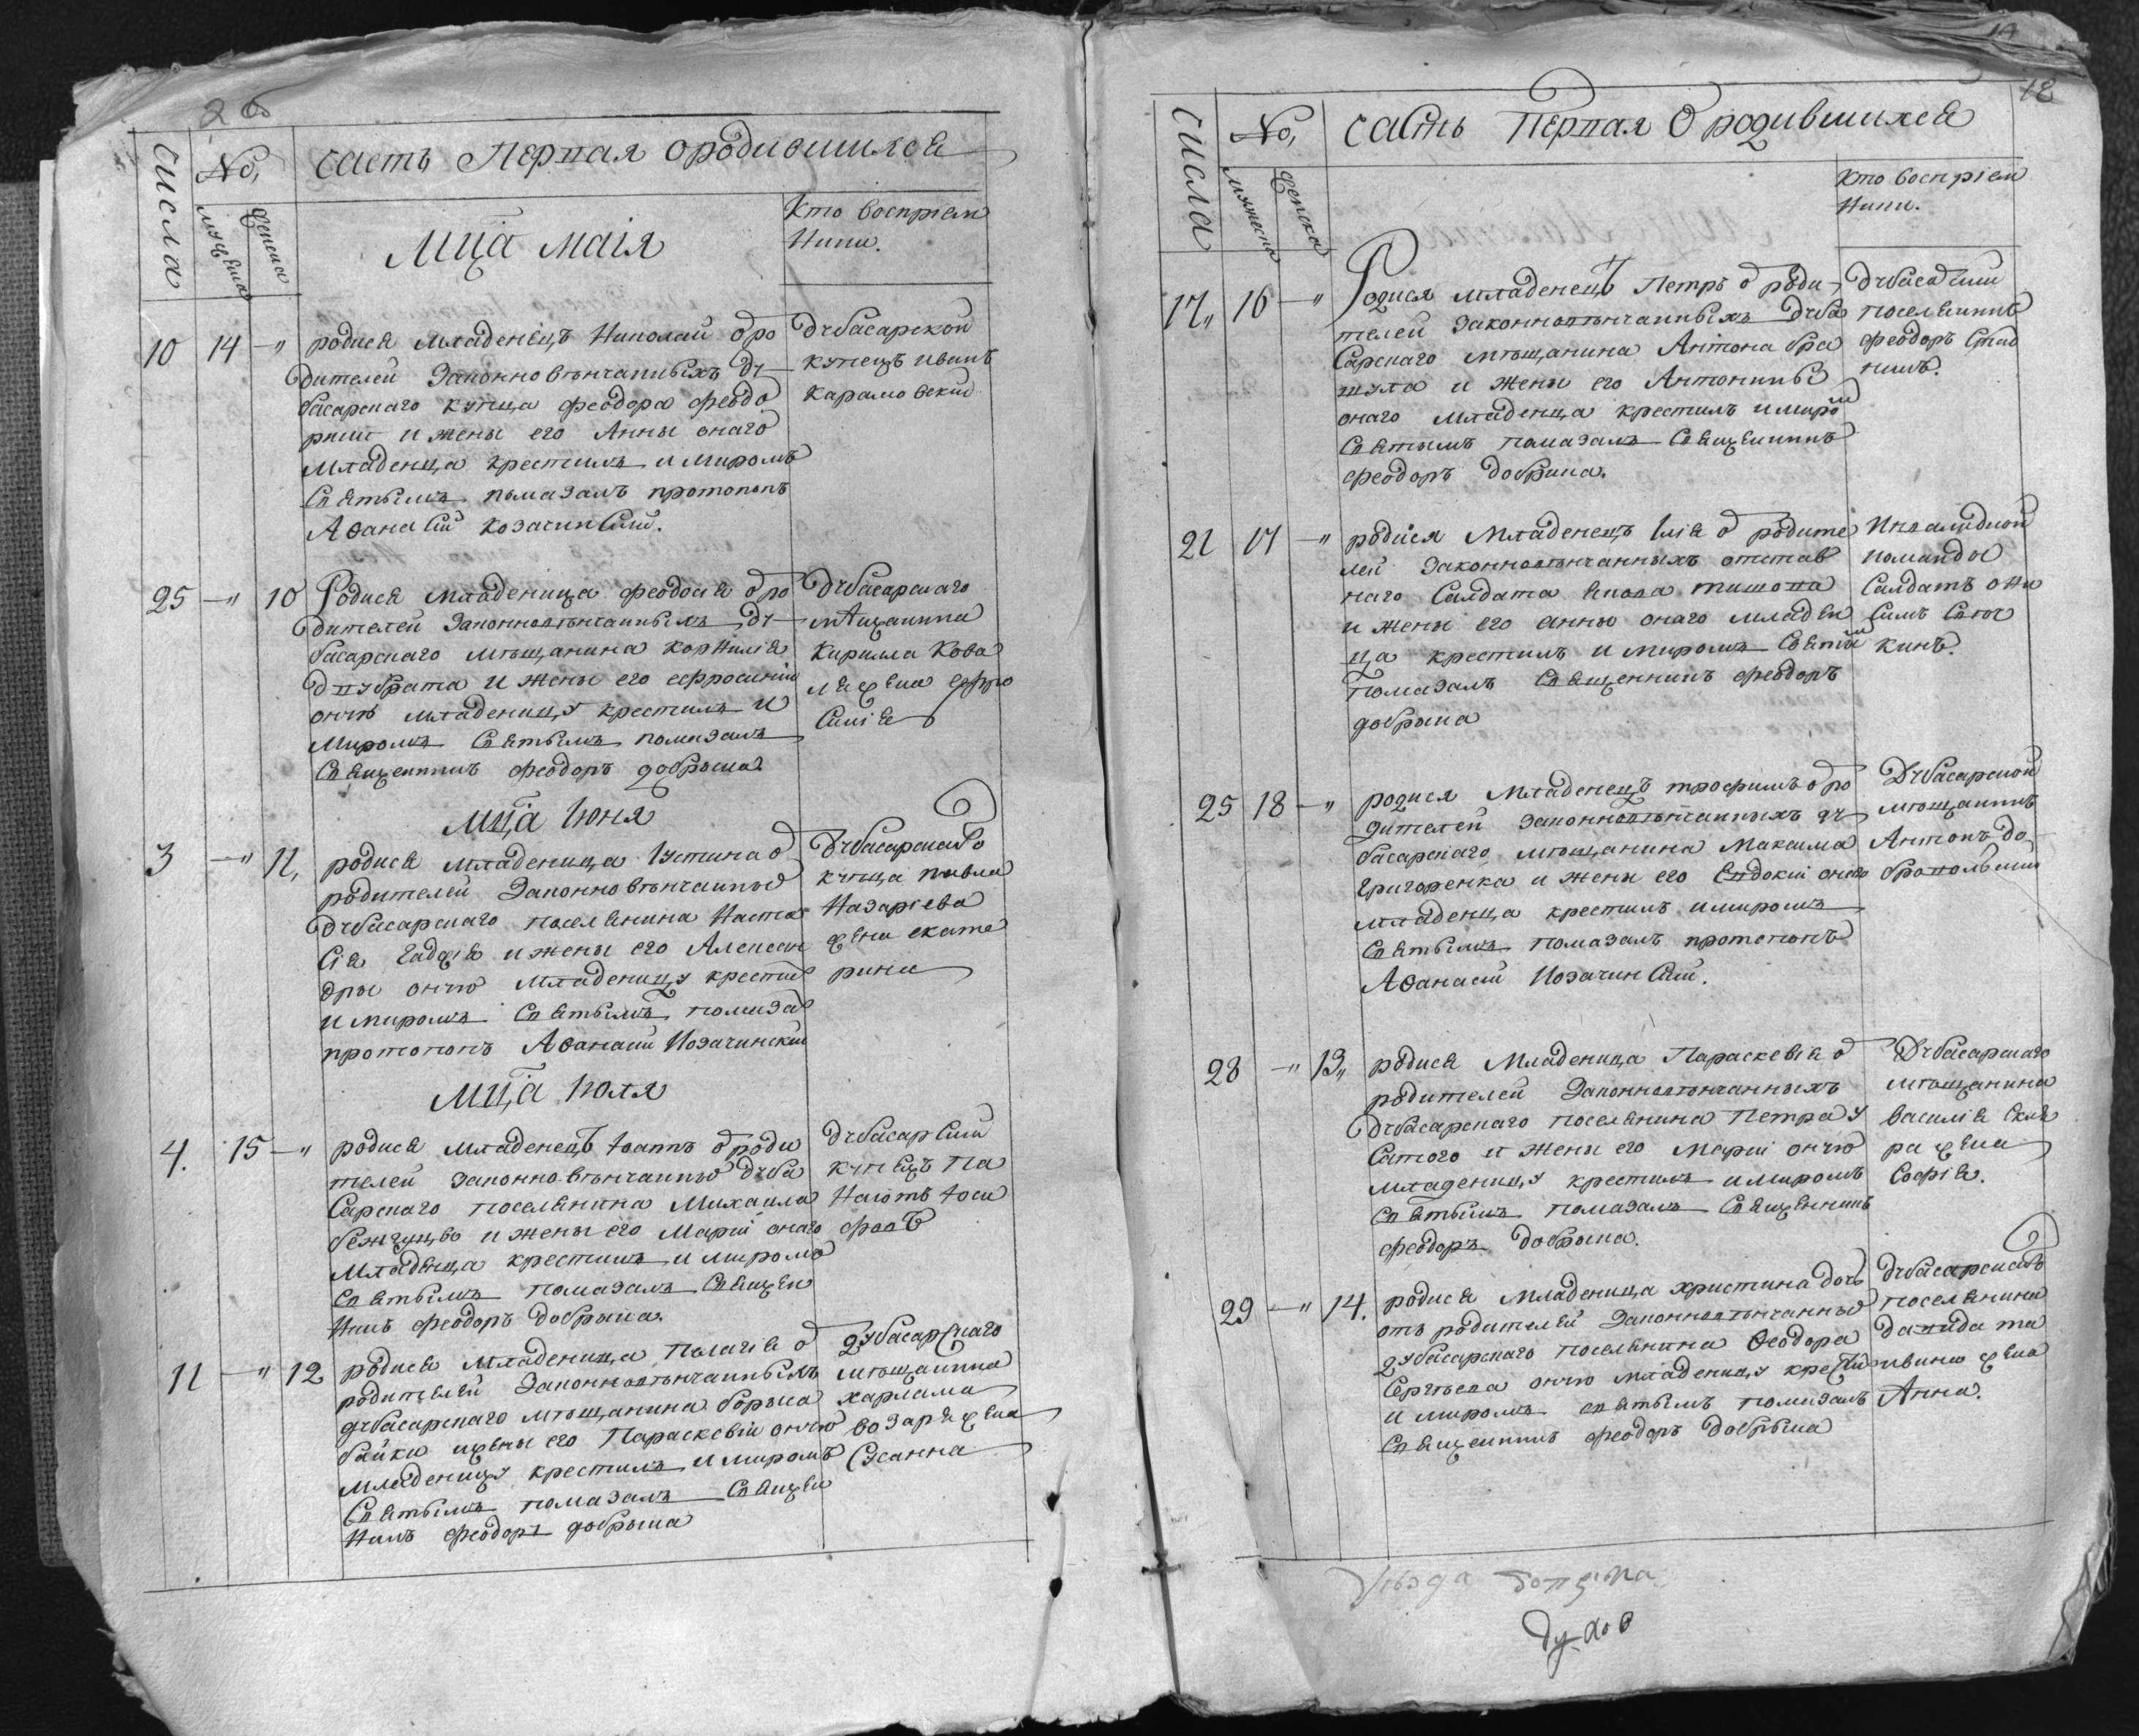 26
числа
No,
часть Первая о родившихся
мужеска
женска
Мца маія
Кто восприем
ники.
10 14 — "
родися младенецъ Николай о ро
дителей законновѣнчанныхъ Ду
басарскаго купца Феодора Феодо
и жены его Анны онаго
младенца крестилъ и миромъ
святымъ помазалъ протопопъ
Афанасій Козачинскій.
Дубасарской
купецъ иванъ
Карамовскій
25 — " 10
Родися младеница феодосія о ро
дителей законновѣнчанныхъ Ду
басарскаго мѣщанина Корнилія
и жены его ефросиніи
оную младеницу крестилъ и
миромъ святымъ помазалъ
священникъ Феодоръ добрыша.
Дубасарскаго
мѣщанина
Кирилла Кова
ля жена ефро
синія
Мца Іюня
3 — " 11,
родися младеница Іустина о
родителей законновѣнчанны
Дубасарскаго поселянина Наста
сія и жены его Алексан
дры оную младеницу крести
и миромъ святымъ помаза
протопопъ Афанасій Козачинскій
Дубасарскаго
купца павла
Назаріева
жена екате
рина
Мца Іюля
4. 15 — "
родися младенецъ Іоаннъ о роди
телей законновѣнчанны Дуба
сарскаго поселянина Михаила
и жены его Маріи онаго
младенца крестилъ и миромъ
святымъ помазалъ священ
никъ Феодоръ Добрыша.
Дубасарскій
купецъ Па
наіотъ Іоси
фовъ
11 — " 12
родися младеница Пелагія о
родителей законновѣнчанныхъ
дубасарскаго мѣщанина бориса
бойки и жены его Параскевіи оную
младеницу крестилъ и миромъ
святымъ помазалъ священ
никъ Феодоръ добрыша
дубасарскаго
мѣщанина
харлама
возаря жена
Сусанна
12
числа
No,
часть Первая О родившихся
мужеска
женска
Кто восприем
ники.
17,, 16 — "
Родися младенецъ Петръ о роди
телей законновѣнчанныхъ Дуба
сарскаго мѣщанина Антона бра
шула и жены его Антонины
онаго младенца крестилъ и миро
святымъ помазалъ священникъ
Феодоръ добрыша.
Дубасарскій
поселянинъ
Феодоръ
21 17 — "
родися младенецъ Ілія о родите
лей законновѣнчанныхъ отстав
наго салдата якова тишова
и жены его анны онаго младен
ца крестилъ и миромъ святы
помазалъ священникъ Феодоръ
добрыша
Инвалидной
команды
салдатъ они
симъ
кинъ.
25 18 — "
родися младенецъ трофимъ о ро
дителей законновѣнчанныхъ ду
басарскаго мѣщанина Максима
Григоренка и жены его Евдокіи онаго
младенца крестилъ и миромъ
святымъ помазалъ протопопъ
Афанасій Козачинскій.
Дубасарской
мѣщанинъ
Антонъ До
бровольскій
28 — " 13,,
родися младеница Параскевія о
родителей законновѣнчанныхъ
Дубасарскаго поселянина Петра У
сатого и жены его Маріи оную
младеницу крестилъ и миромъ
святымъ помазалъ священникъ
Феодоръ Добрыша.
Дубасарскаго
мѣщанина
василія скля
ра жена
Софія.
29 — " 14.
родися младеница христина дочь
отъ родителей законновѣнчанны
дубасарскаго поселянина Феодора
Сергѣева оную младеницу крестил
и миромъ святымъ помазалъ
священникъ Феодоръ добрыша
дубасарскаго
поселянина
данида та
ивина жена
Анна.